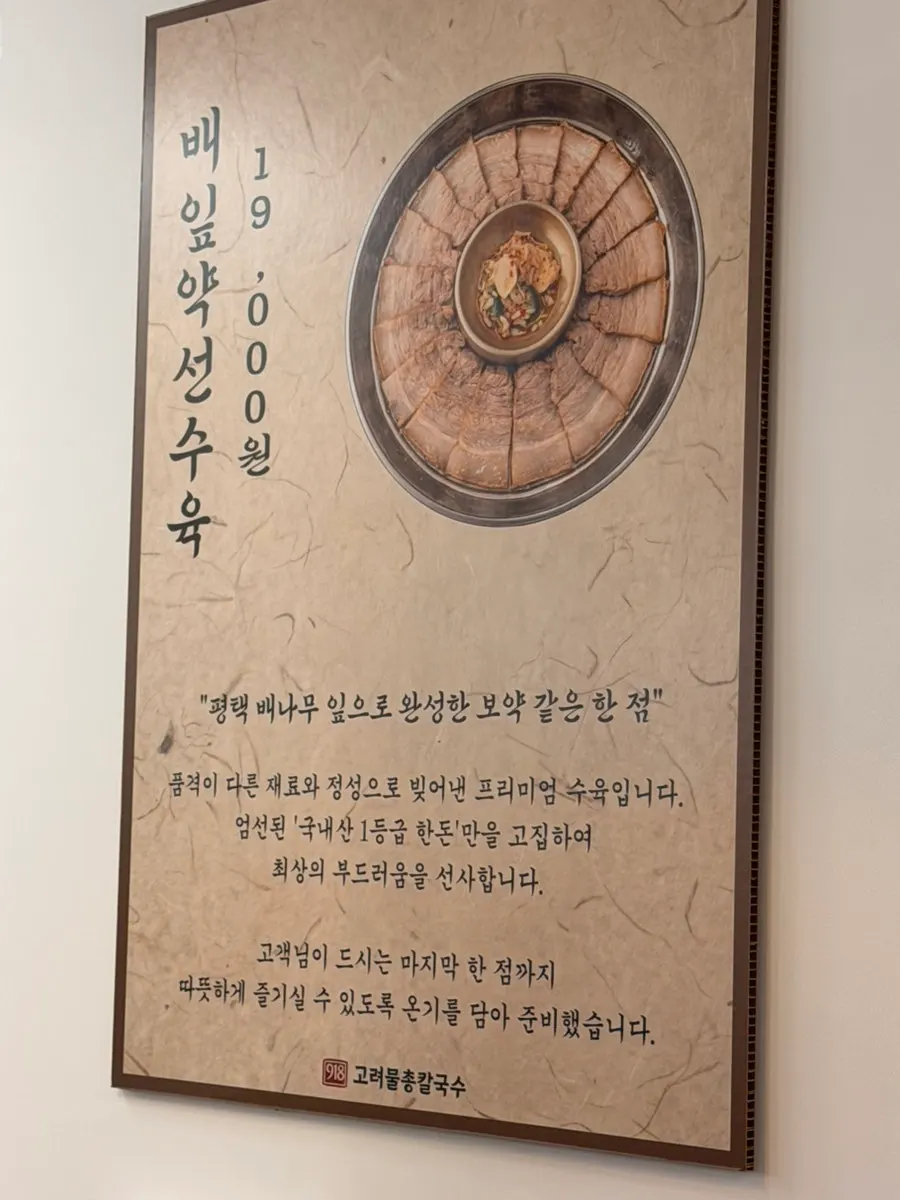 배잎약선수육
19,000원
"평택 배나무 잎으로 완성한 보약 같은 한 점"
품격이 다른 재료와 정성으로 빚어낸 프리미엄 수육입니다.
엄선된 '국내산 1등급 한돈'만을 고집하여
최상의 부드러움을 선사합니다.
고객님이 드시는 마지막 한 점까지
따뜻하게 즐기실 수 있도록 온기를 담아 준비했습니다.
918 고려물총칼국수